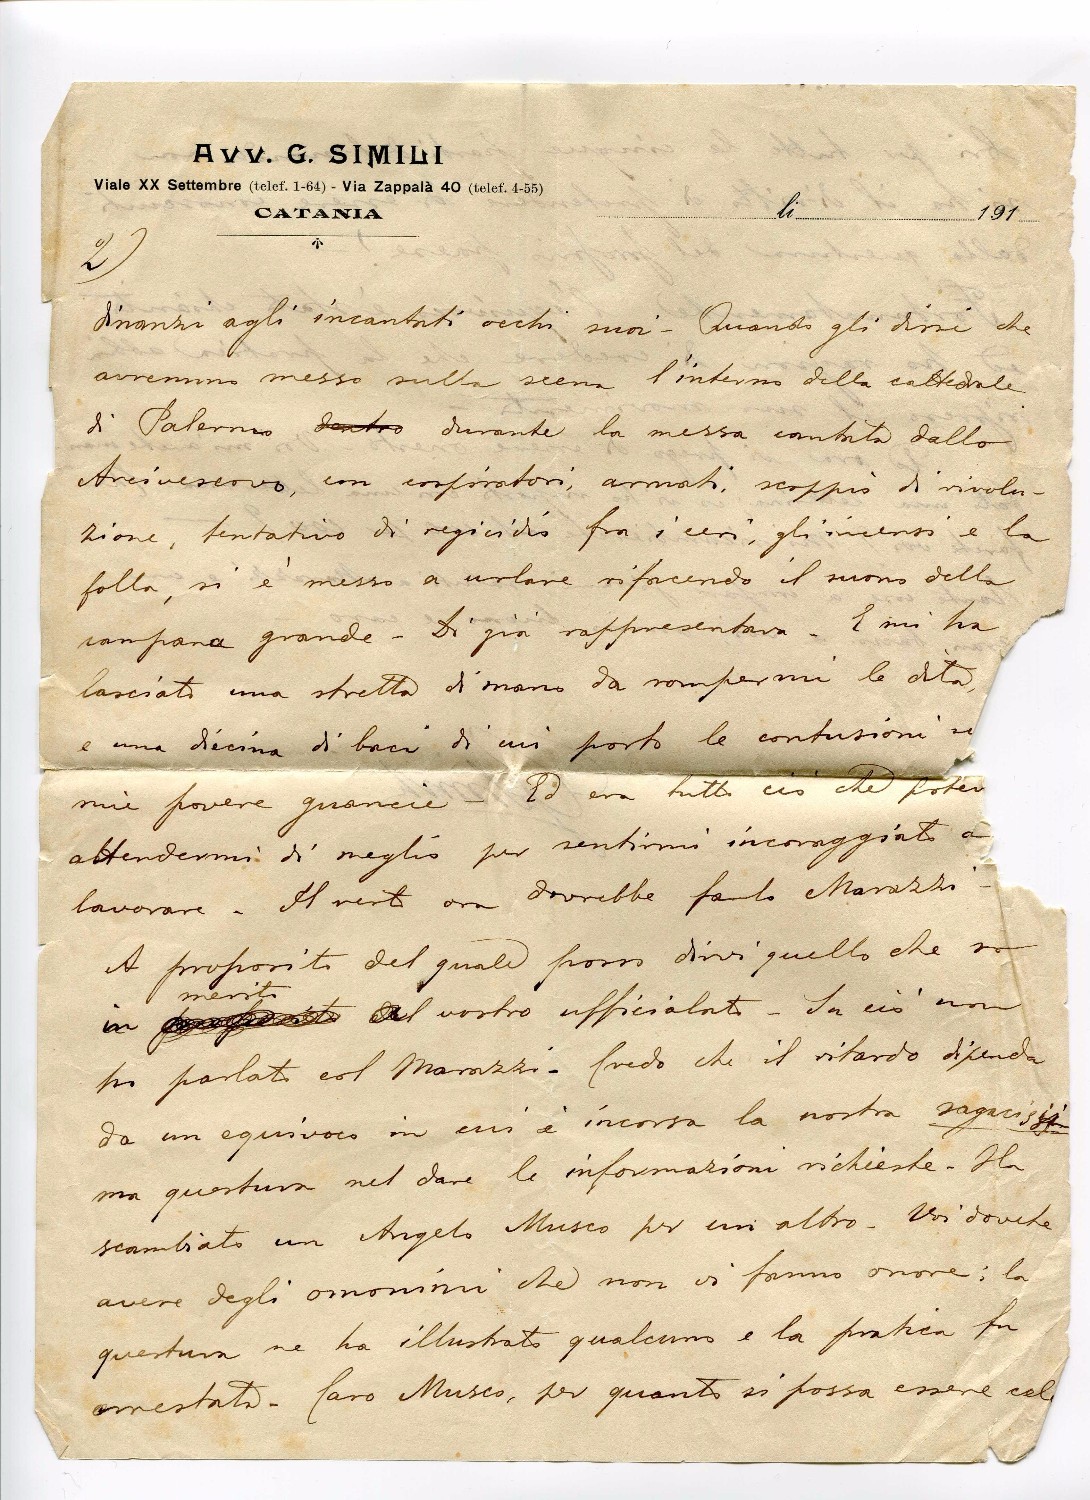 Avv. G. SIMILI
Viale XX Settembre (telef. 1-64) - Via Zappalà 40 (telef. 4-55)
CATANIA
li 191
2)
dinanzi agli incantati occhi suoi - Quando gli dissi che
avremmo messo sulla scena l'interno della cattedrale
di Palermo dentro durante la messa cantata dallo
Arcivescovo, con cospiratori, armati, scoppio di rivolu-
zione, tentativo di regicidio fra i ceri, gli incensi e la
folla, si è messo a urlare rifacendo il suono della
campana grande - Di già rappresentava - E mi ha
lasciato una stretta di mano da rompermi le dita,
e una diecina di baci di cui porto le contusioni
mie povere guancie - Ed era tutto ciò che potev
attendermi di meglio per sentirmi incoraggiato a
lavorare - Il resto ora dovrebbe farlo Marazzi -
A proposito del quale posso dirvi quello che so
merito
in del vostro ufficialato - Su ciò non
ho parlato col Marazzi - Credo che il ritardo dipenda
da un equivoco in cui è incorsa la nostra sagacissi
ma questura nel dare le informazioni richieste - Ha
scambiato un Angelo Musco per un altro - Voi dovete
avere degli omonimi che non vi fanno onore; la
questura ne ha illustrato qualcuno e la pratica fu
arrestata - Caro Musco, per quanto si possa essere cel